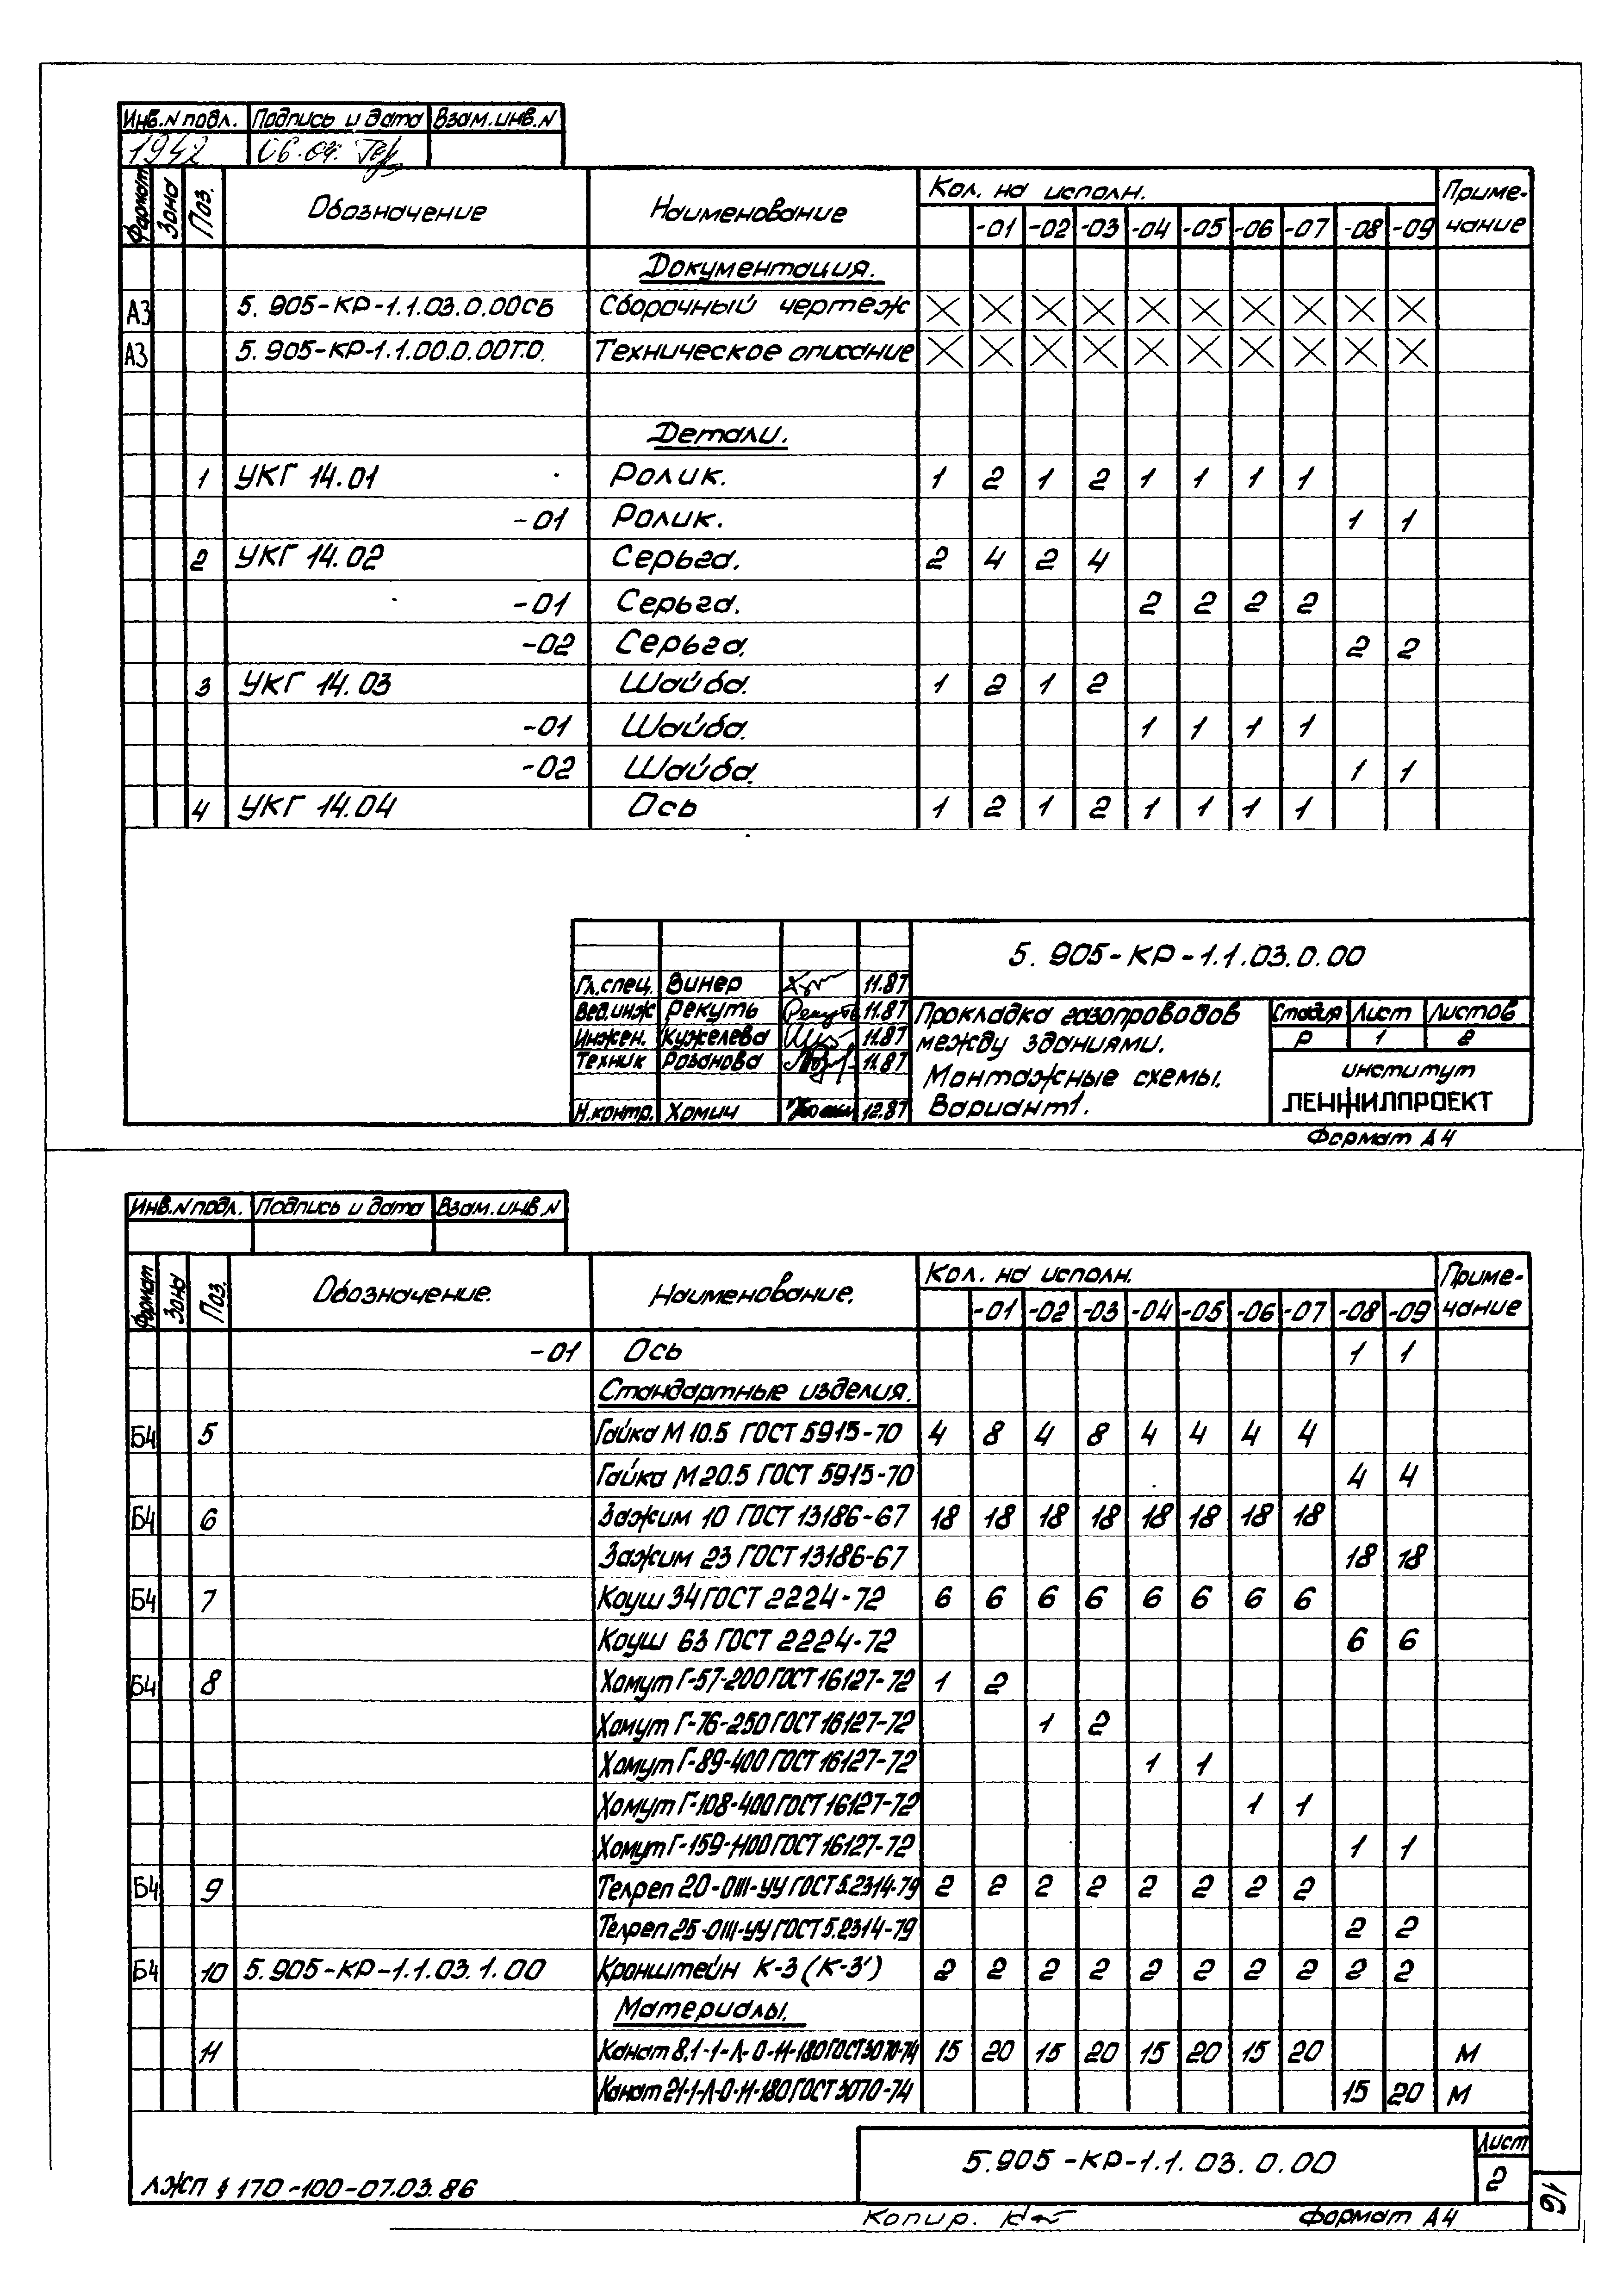 Инв.N подл. Подпись и дата Взам.инв.N
1942 06.04.
Формат Зона Поз. Обозначение Наименование Кол. на исполн. Приме-
-01 -02 -03 -04 -05 -06 -07 -08 -09 чание
Документация.
А3 5.905-КР-1.1.03.0.00СБ Сборочный чертеж X X X X X X X X X X
А3 5.905-КР-1.1.00.0.00Т.О. Техническое описание X X X X X X X X X X
Детали.
1 УКГ 14.01 Ролик. 1 2 1 2 1 1 1 1
-01 Ролик. 1 1
2 УКГ 14.02 Серьга. 2 4 2 4
-01 Серьга. 2 2 2 2
-02 Серьга. 2 2
3 УКГ 14.03 Шайба. 1 2 1 2
-01 Шайба. 1 1 1 1
-02 Шайба. 1 1
4 УКГ 14.04 Ось 1 2 1 2 1 1 1 1
5.905-КР-1.1.03.0.00
Гл.спец. Винер 11.87
Вед.инж Рекуть 11.87
Инжен. Кужелева 11.87
Техник Розанова 11.87
Н.контр. Хомич 12.87
Прокладка газопроводов
между зданиями.
Монтажные схемы.
Вариант 1.
Стадия Лист Листов
Р 1 2
институт
ЛЕНЖИЛПРОЕКТ
Формат А4
Инв.N подл. Подпись и дата Взам.инв.N
Формат Зона Поз. Обозначение. Наименование. Кол. на исполн. Приме-
-01 -02 -03 -04 -05 -06 -07 -08 -09 чание
-01 Ось 1 1
Стандартные изделия.
Б4 5 Гайка М 10.5 ГОСТ 5915-70 4 8 4 8 4 4 4 4
Гайка М 20.5 ГОСТ 5915-70 4 4
Б4 6 Зажим 10 ГОСТ 13186-67 18 18 18 18 18 18 18 18
Зажим 23 ГОСТ 13186-67 18 18
Б4 7 Коуш 34 ГОСТ 2224-72 6 6 6 6 6 6 6 6
Коуш 63 ГОСТ 2224-72 6 6
Б4 8 Хомут Г-57-200 ГОСТ 16127-72 1 2
Хомут Г-76-250 ГОСТ 16127-72 1 2
Хомут Г-89-400 ГОСТ 16127-72 1 1
Хомут Г-108-400 ГОСТ 16127-72 1 1
Хомут Г-159-1400 ГОСТ 16127-72 1 1
Б4 9 Телреп 20-ОIII-УУ ГОСТ 5.2314-79 2 2 2 2 2 2 2 2
Телреп 25-ОIII-УУ ГОСТ 5.2314-79 2 2
Б4 10 5.905-КР-1.1.03.1.00 Кронштейн К-3 (К-3') 2 2 2 2 2 2 2 2 2 2
Материалы.
11 Канат 8,1-1-Л-О-Н-180 ГОСТ 3070-74 15 20 15 20 15 20 15 20 М
Канат 21-1-Л-О-Н-180 ГОСТ 3070-74 15 20 М
5.905-КР-1.1.03.0.00
Лист
2
ЛЖСП § 170-100-07.03.86
Копир.
Формат А4
16